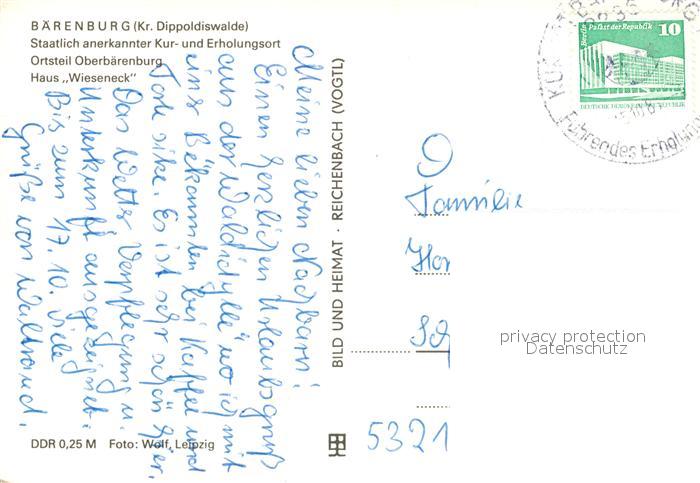 BÄRENBURG (Kr. Dippoldiswalde)
Staatlich anerkannter Kur- und Erholungsort
Ortsteil Oberbärenburg
Haus „Wieseneck"
Meine lieben Nachbarn!
Einen herzlichen Urlaubsgruß
aus der Waldidylle wo ich mit
eins Bekannten bei Kaffee und
Torte sitze. Es ist sehr schön hier.
Das Wetter, Verpflegung u.
Unterkunft ausgezeichnet.
Bis zum 17.10. viele
Grüße von Waltraud.
DDR 0,25 M Foto: Wolf, Leipzig
BILD UND HEIMAT · REICHENBACH (VOGTL)
Berlin Palast der Republik
10
DEUTSCHE DEMOKRATISCHE REPUBLIK
Führendes Erholung
Familie
Hor
Sch
privacy protection
Datenschutz
5321